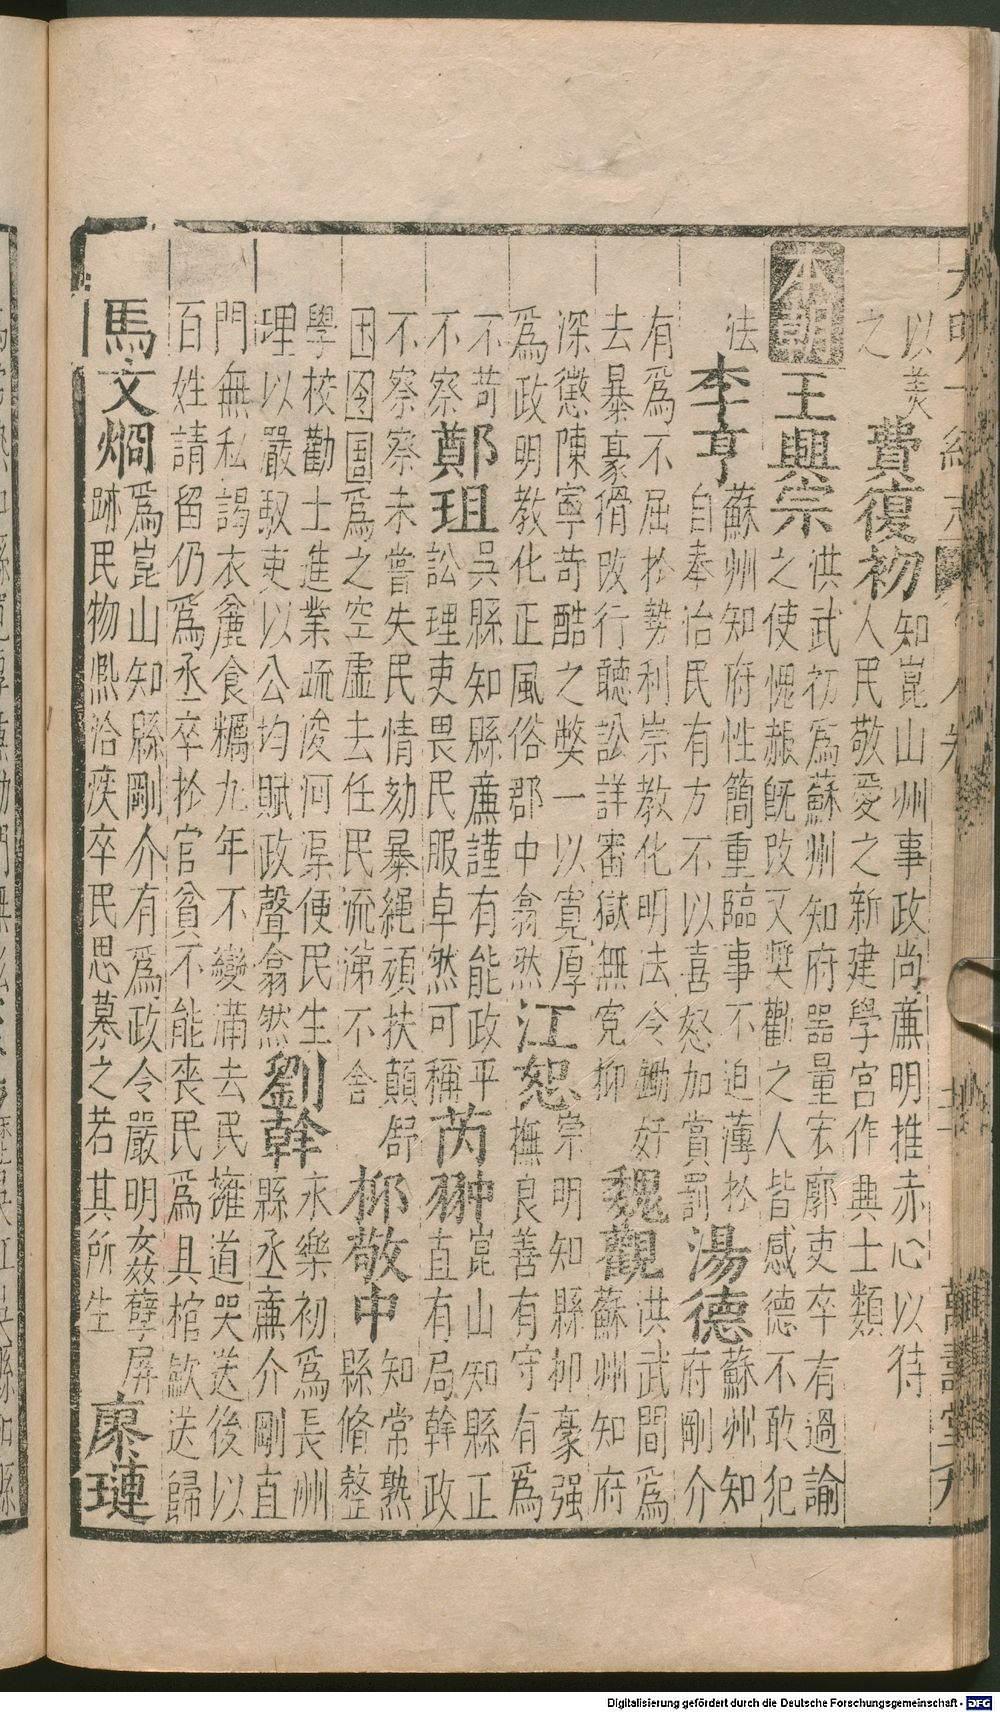 以羙
之
費復初
知崑山州事政尚亷明推赤心以待
人民敬愛之新建學宮作興士類
本朝
王興宗
洪武初爲蘇州知府器量宏廓吏卒有過諭
之使愧赧旣改又奬勸之人皆感德不敢犯
法
李亨
蘇州知府性簡重臨事不迫薄扵
自奉治民有方不以喜怒加賞罰
湯德
蘇州知
府剛介
有爲不屈扵勢利崇教化明法令鋤奸
去暴豪猾改行聽訟詳審獄無寃抑
魏觀
洪武間爲
蘇州知府
深懲陳寧苛酷之獘一以寛厚
爲政明教化正風俗郡中翕然
江恕
崇明知縣抑豪强
撫良善有守有爲
不苛
不察
鄭珇
吳縣知縣亷謹有能政平
訟理吏畏民服卓然可稱
芮翀
崑山知縣正
直有局幹政
不察察未嘗失民情劾暴繩頑扶顛舒
困囹圄爲之空虛去任民流涕不舍
柳敬中
知常熟
縣脩整
學校勸士進業疏浚河渠便民生
理以嚴馭吏以公均賦政聲翕然
劉幹
永樂初爲長洲
縣丞亷介剛直
門無私謁衣麄食糲九年不變滿去民擁道哭送後以
百姓請留仍爲丞卒扵官貧不能喪民爲具棺歛送歸
馬文烱
爲崑山知縣剛介有爲政令嚴明姦孽屏
跡民物熈洽疾卒民思慕之若其所生
康璉
Digitalisierung gefördert durch die Deutsche Forschungsgemeinschaft - DFG